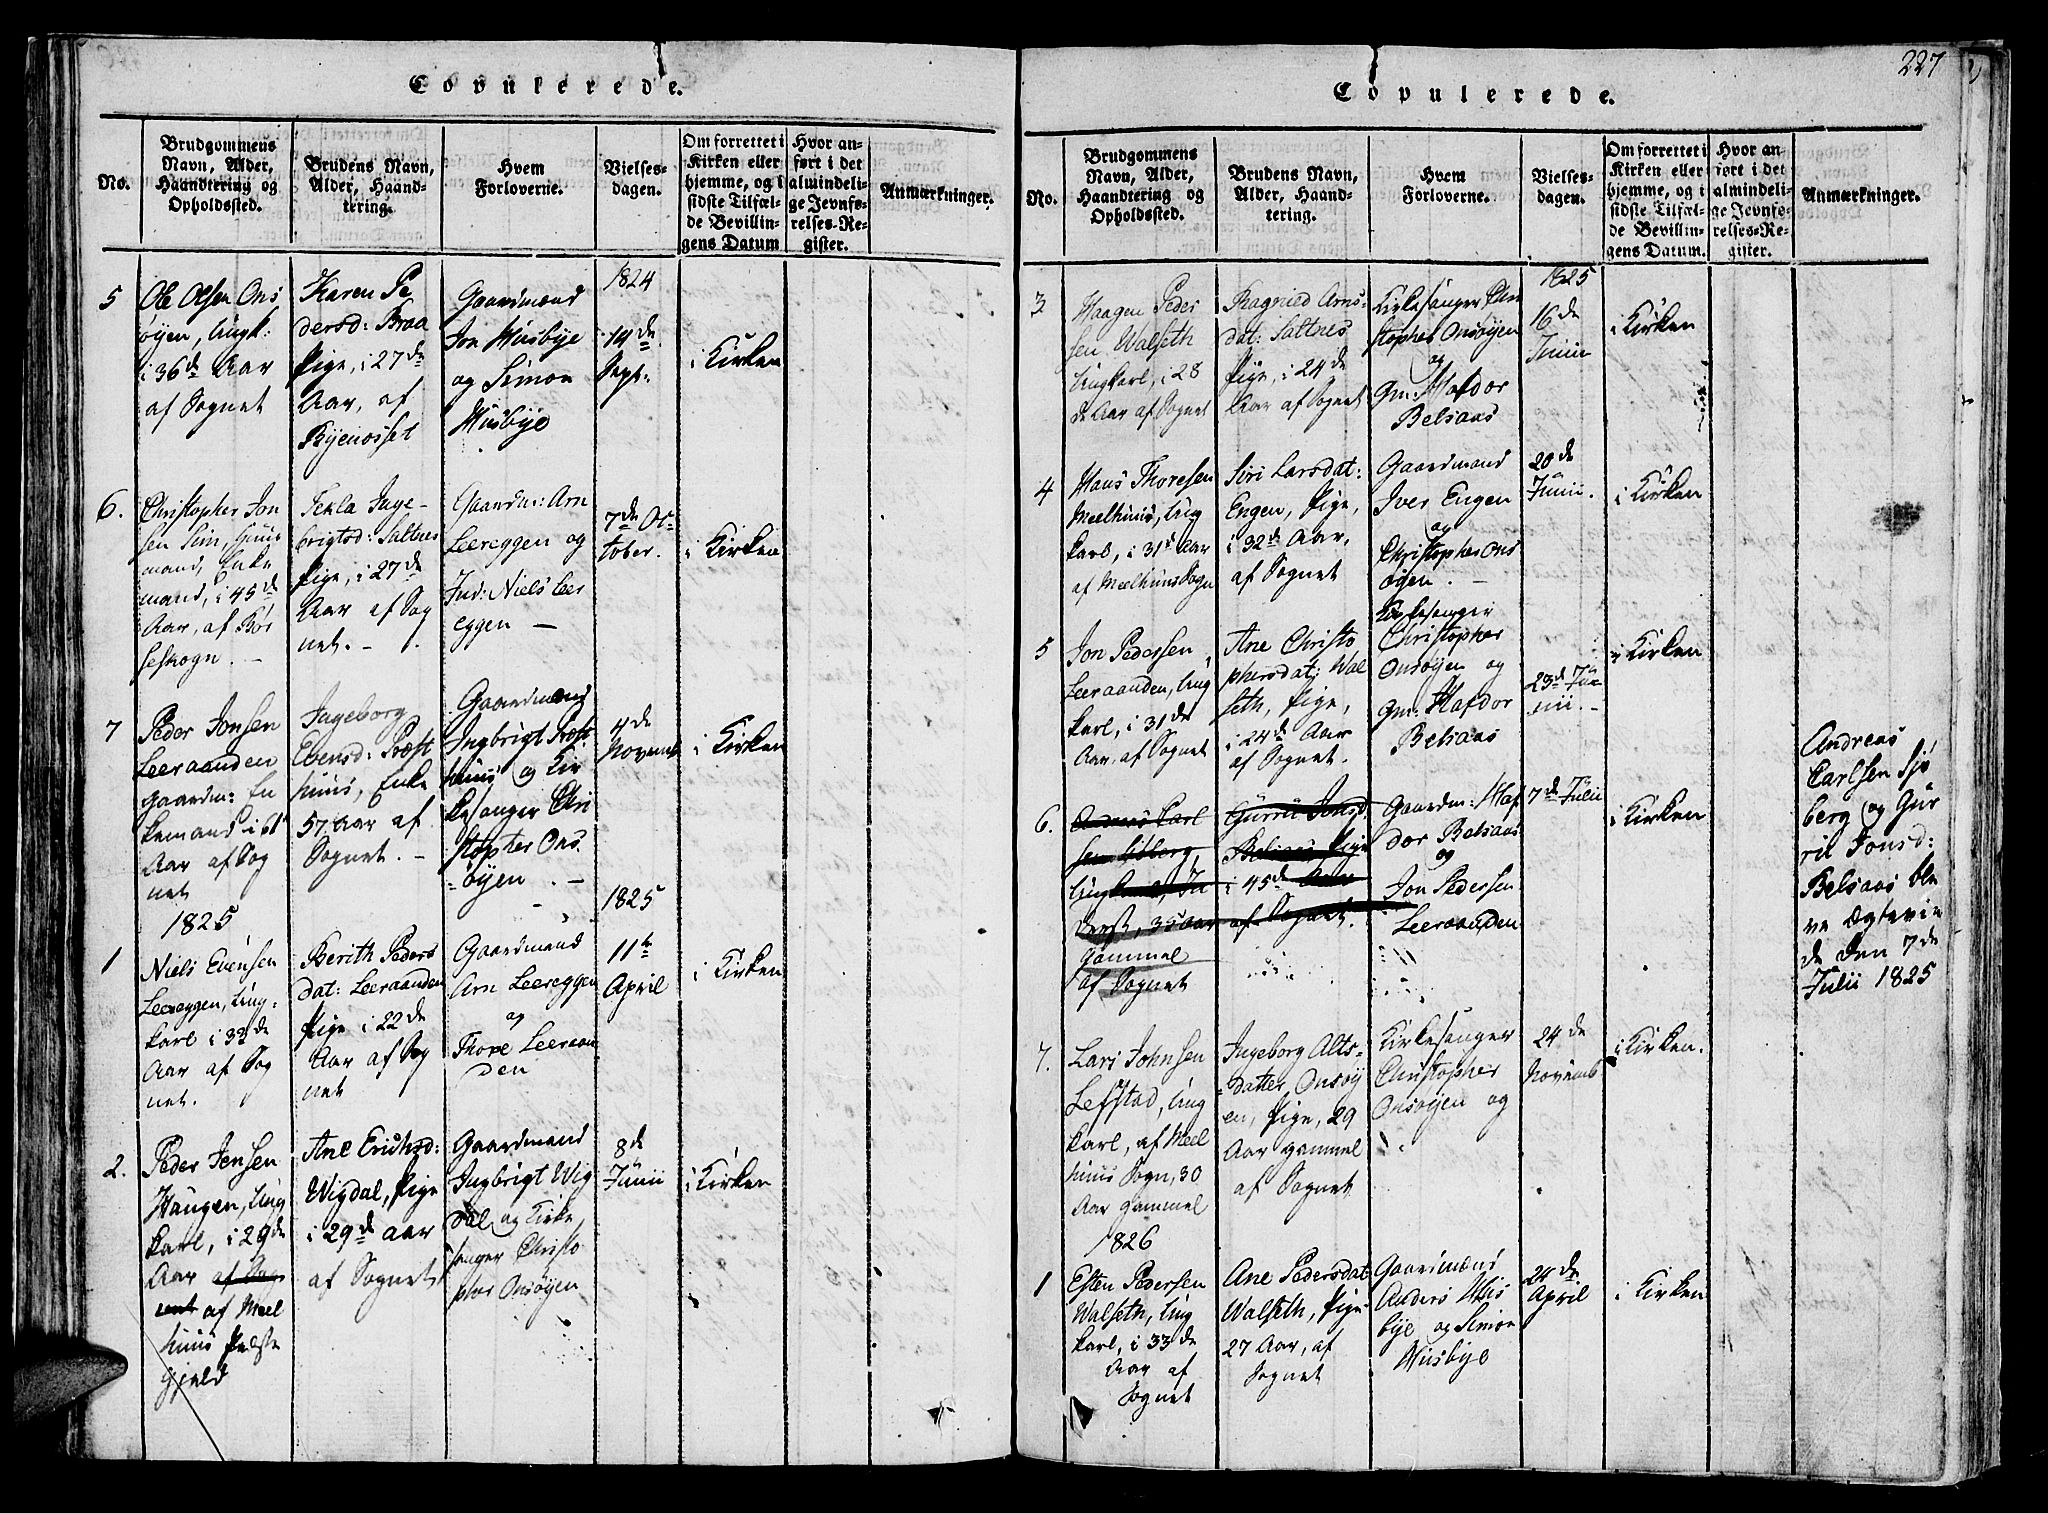 Copulerede.
No.
Brudgommens Navn, Alder, Haandtering og Opholdssted.
Brudens Navn, Alder, Haandtering.
Hvem Forloverne.
Vielsesdagen.
Om forrettet i Kirken eller hjemme, og i sidste Tilfælde Bevillingens Datum
Hvor anført i det almindelige Jevnførelses-Register.
Anmærkninger.
5
Ole Olsen Ons
öyen, Ungk:
i 36de Aar
af Sognet
Karen Pe
dersd: Braa
Pige, i 27de
Aar, af
Byenesset
Gaardmænd
Jon Husbye
og Simon
Husbye
1824
14de
Sept:
i Kirken
6.
Christopher Jon
sen Lim, Huus
mand, Enke
mand, i 45de
Aar, af Bör
seskogn. -
Tekla Inge-
brigtsd: Saltnes
Pige, i 27de
Aar af Sog
net. -
Gaardm: Arn
Leereggen og
Ind: Niels Leer
eggen -
7de Oc
tober.
i Kirken
7
Peder Jonsen
Leeraanden
Gaardm: En
kemand i 61
Aar af Sog
net
Ingeborg
Evensd: Præst
huus, Enke
57 Aar af
Sognet. -
Gaardmand
Ingbrigt Præst
huus og Kir
kesanger Chri
stopher Ons
öyen. -
4de
Novemb
i Kirken
1825
1
Niels Evensen
Leereggen, Ung-
karl i 33de
Aar af Sog
net.
Berith Peders
dat: Leeraanden
Pige i 22de
Aar af Sog
net
Gaardmand
Arn Leereggen
og
Thore Leeraan
den
1825
11te
April
i Kirken
2.
Peder Jensen
Haugen, Ung
karl, i 28de
Aar af Sog
net af Meel
huus Præste
gjeld
Ane Erichsd:
Wigdal, Pige
i 29de Aar
af Sognet
Gaardmand
Ingbrigt Wig
dal og Kirke
sanger Christo
pher Onsöyen
8de
Junii
i Kirken
227
Copulerede.
No.
Brudgommens Navn, Alder, Haandtering og Opholdssted.
Brudens Navn, Alder, Haandtering.
Hvem Forloverne.
Vielsesdagen.
Om forrettet i Kirken eller hjemme, og i sidste Tilfælde Bevillingens Datum.
Hvor anført i det almindelige Jevnførelses-Register.
Anmærkninger.
3
Haagen Peder
sen Walseth
Ungkarl, i 28
de Aar af Sognet
Ragnied Arns-
dat: Saltnes
Pige, i 24de
Aar af Sognet
Kirkesanger Chri
stopher Onsöyen
og
Gm: Hafdor
Belsaas
1825
16de
Junii
i Kirken
4
Hans Thoresen
Meelhuus, Ung
karl, i 31de Aar
af Meelhuus Sogn
Siri Larsdat:
Engen, Pige,
i 32de Aar,
af Sognet
Gaardmand
Iver Engen
og
Christopher Ons
öyen. -
20de
Junii.
i Kirken
5
Jon Pedersen
Leeraanden, Ung
karl, i 31de
Aar, af Sognet
Ane Christo
phersdat: Wal
seth, Pige,
i 24de Aar
af Sognet.
Kirkesanger
Christopher
Onsöyen og
Gm: Hafdor
Belsaas
23de Ju-
nii. -
i Kirken
6.
Andreas Carl
gammel
af Sognet
Gurru Jonsd
Belsaas, Pige
i 45de Aar
af Sognet.
Gaardm: Haf
dor Belsaas
og
Jon Pedersen
Leeraanden
7de Julii
i Kirken
Andreas
Carlsen Sjö
berg og Gur
ril Jonsd:
Belsaas ble
ve Ægtevie
de den 7de
Julii 1825
7.
Lars Johnsen
Lefstad, Ung
karl, af Meel
huus Sogn, 30
Aar gammel
Ingeborg Alts-
datter, Onsöy
en, Pige, 29
Aar gammel
af Sognet
Kirkesanger
Christopher
Onsöyen og
24de
Novemb
i Kirken.
1826
1
Esten Pedersen
Walseth, Ung
karl, i 33de
Aar af
Sognet
Ane Pedersdat
Walseth, Pige
27 Aar, af
Sognet
Gaardmænd
Anders Hus
bye og Simon
Husbye
24de
April
i Kirken